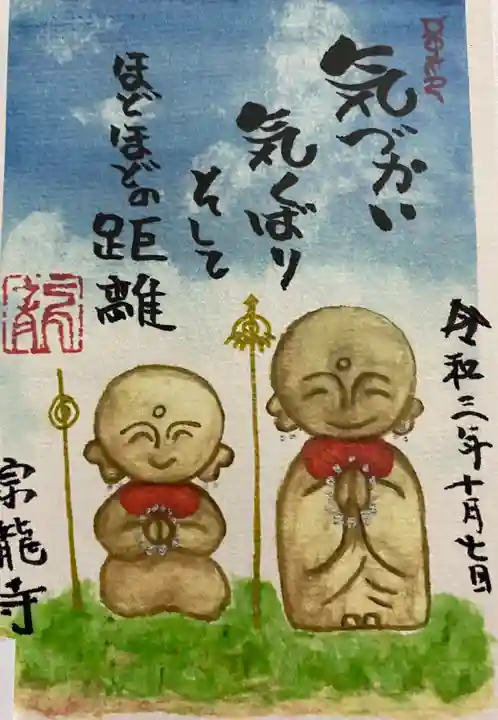 気づかい
気くばり
そして
ほどほどの
距離
令和三年十月七日
宗龍寺